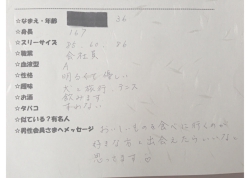 ☆なまえ・年齢 36
☆身長 167
☆スリーサイズ 88. 60. 86
☆職業 会社員
☆血液型 A
☆性格 明るめで優しい
☆趣味 犬と旅行、ダンス
☆お酒 飲みます
☆タバコ すわない
☆似ている?有名人
☆男性会員さまへメッセージ おいしいものを食べに行くのが
好きな方と出会えたらいいなと
思ってます